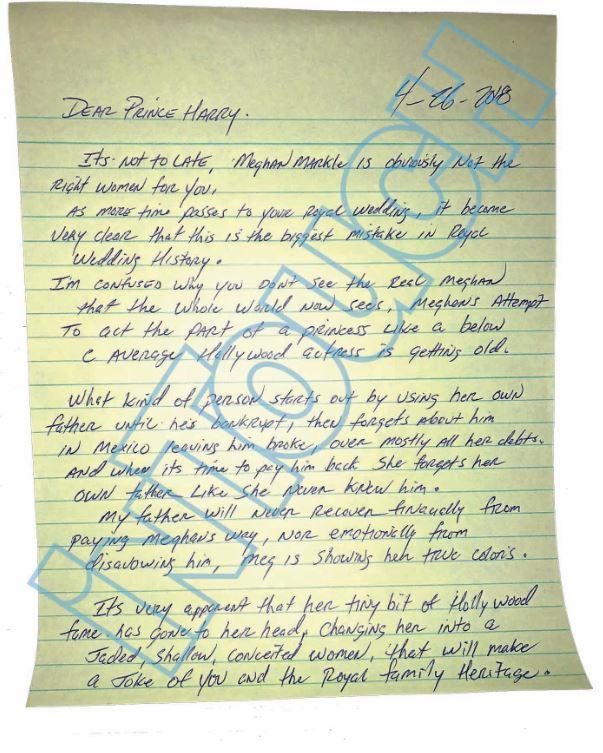 4-26-2018
DEAR PRINCE HARRY.
Its not to LATE, Meghan Markle is obviously Not the
Right women for you,
As more time passes to your Royal wedding, it became
very clear that this is the biggest mistake in Royal
Wedding History.
Im confused why you don't see the Real Meghan
that the whole world now sees, Meghans Attempt
To act the part of a princess Like a below
C Average Hollywood actress is getting old.
What kind of person starts out by using her own
father until he's bankrupt, then forgets about him
in Mexico leaving him broke, over mostly all her debts.
And when its time to pay him back She forgets her
own father Like She never Knew him.
My father will Never recover financially from
paying Meghans way, Nor emotionally from
disavowing him, Meg is Showing her true colors.
It's very apparent that her tiny bit of Hollywood
fame has gone to her head, Changing her into a
Jaded, Shallow, conceited women, that will make
a Joke of you and the Royal family Heritage.
InTouch